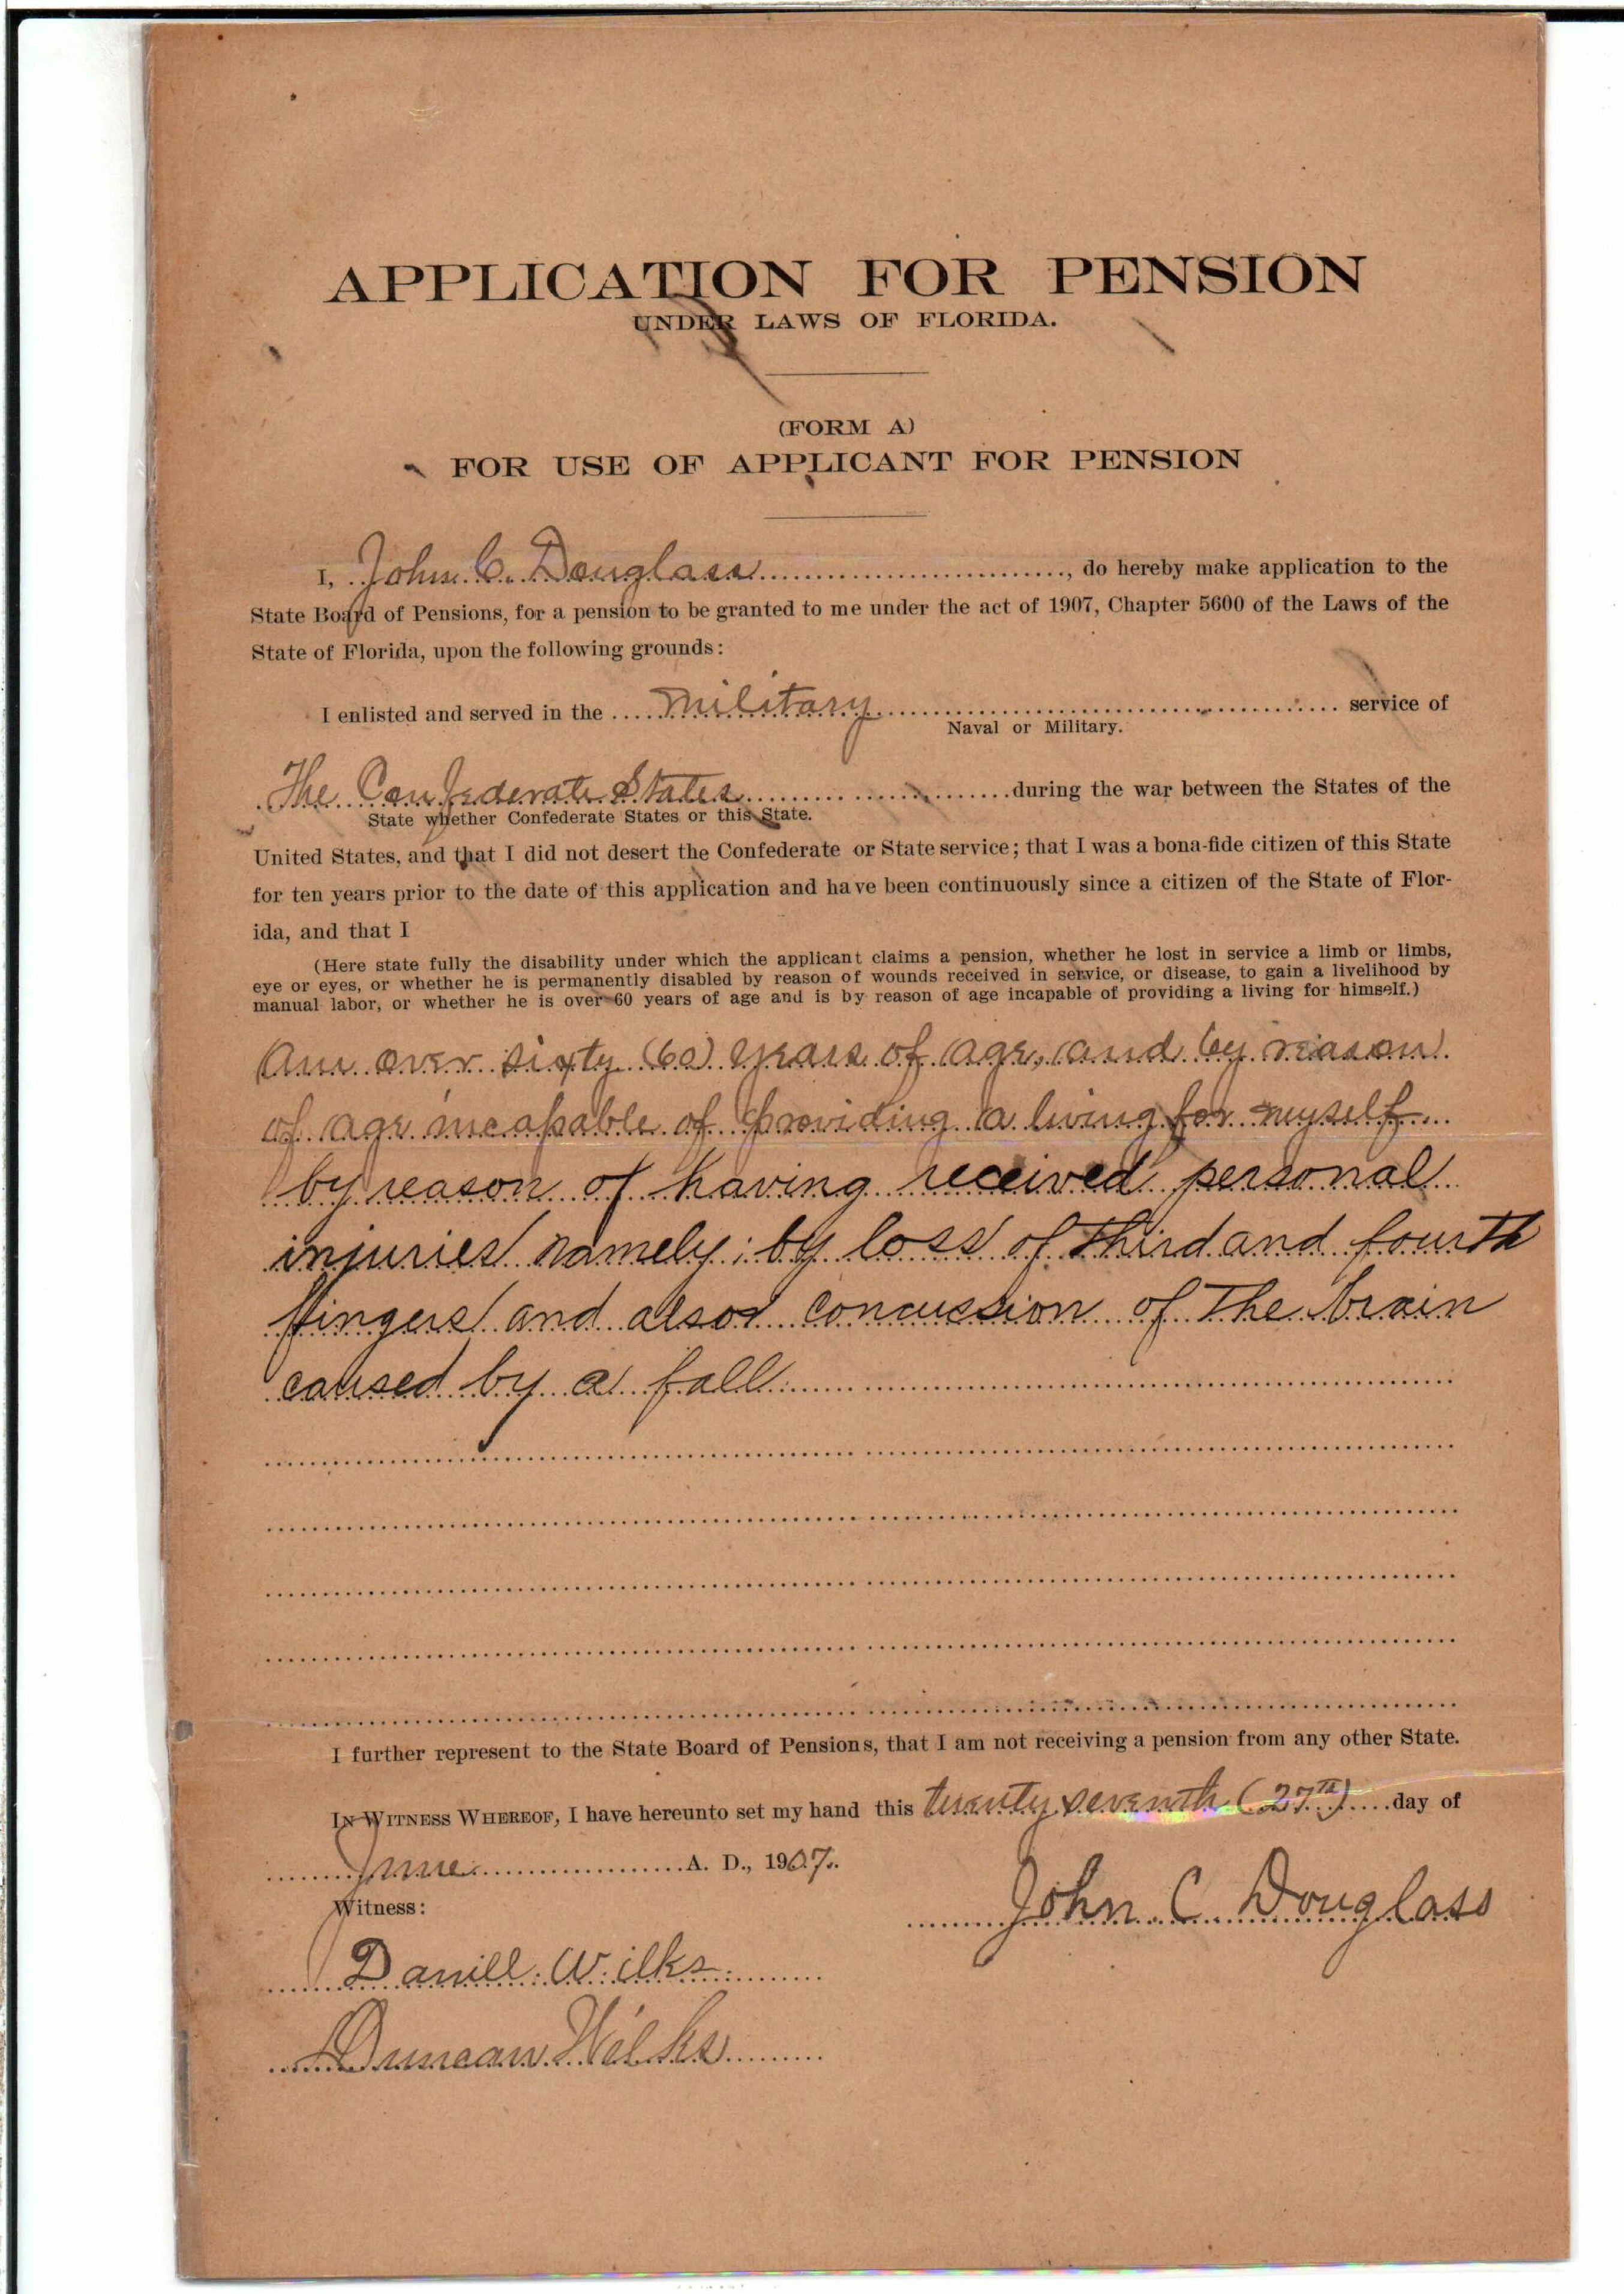 APPLICATION FOR PENSION
UNDER LAWS OF FLORIDA.
(FORM A)
FOR USE OF APPLICANT FOR PENSION
I, John C. Douglass, do hereby make application to the
State Board of Pensions, for a pension to be granted to me under the act of 1907, Chapter 5600 of the Laws of the
State of Florida, upon the following grounds:
I enlisted and served in the military service of
Naval or Military.
The Confederate States during the war between the States of the
State whether Confederate States or this State.
United States, and that I did not desert the Confederate or State service; that I was a bona-fide citizen of this State
for ten years prior to the date of this application and have been continuously since a citizen of the State of Flor-
ida, and that I
(Here state fully the disability under which the applicant claims a pension, whether he lost in service a limb or limbs,
eye or eyes, or whether he is permanently disabled by reason of wounds received in service, or disease, to gain a livelihood by
manual labor, or whether he is over 60 years of age and is by reason of age incapable of providing a living for himself.)
Am over sixty (60) years of age, and by reason
of age incapable of providing a living for myself
by reason of having received personal
injuries namely: by loss of third and fourth
fingers and also concussion of the brain
caused by a fall
I further represent to the State Board of Pensions, that I am not receiving a pension from any other State.
IN WITNESS WHEREOF, I have hereunto set my hand this twenty seventh (27th) day of
June A. D., 1907.
Witness:
John C Douglass
Daniel Wilks
Duncan Wilks